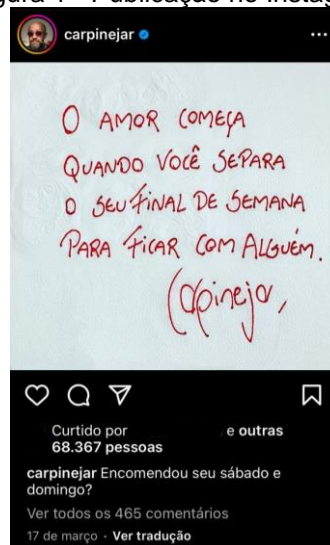 carpinejar
O AMOR COMEÇA
QUANDO VOCÊ SEPARA
O SEU FINAL DE SEMANA
PARA FICAR COM ALGUÉM.
Carpinejar
Curtido por e outras
68.367 pessoas
carpinejar Encomendou seu sábado e
domingo?
Ver todos os 465 comentários
17 de março · Ver tradução